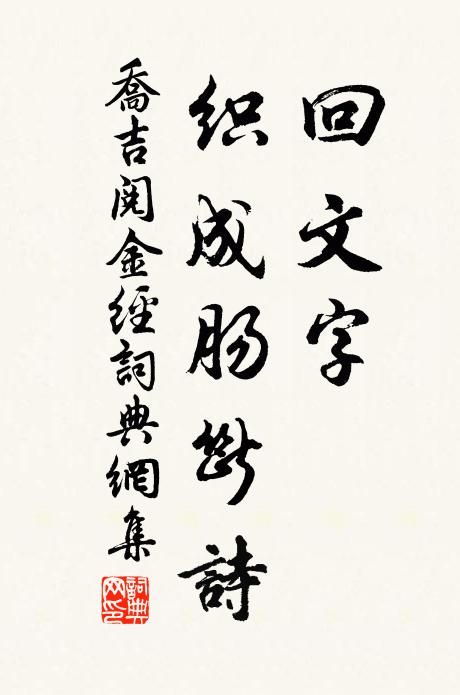 回文字
织成肠断詩
喬吉阅金經詞典網集
詞典网印